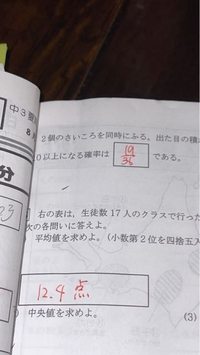 中3
2個のさいころを同時にふる。出た目の積
0以上になる確率は 19/36 である。
分
右の表は、生徒数17人のクラスで行っ
次の各問いに答えよ。
平均値を求めよ。(小数第2位を四捨五入
12.4 点
(3)
中央値を求めよ。